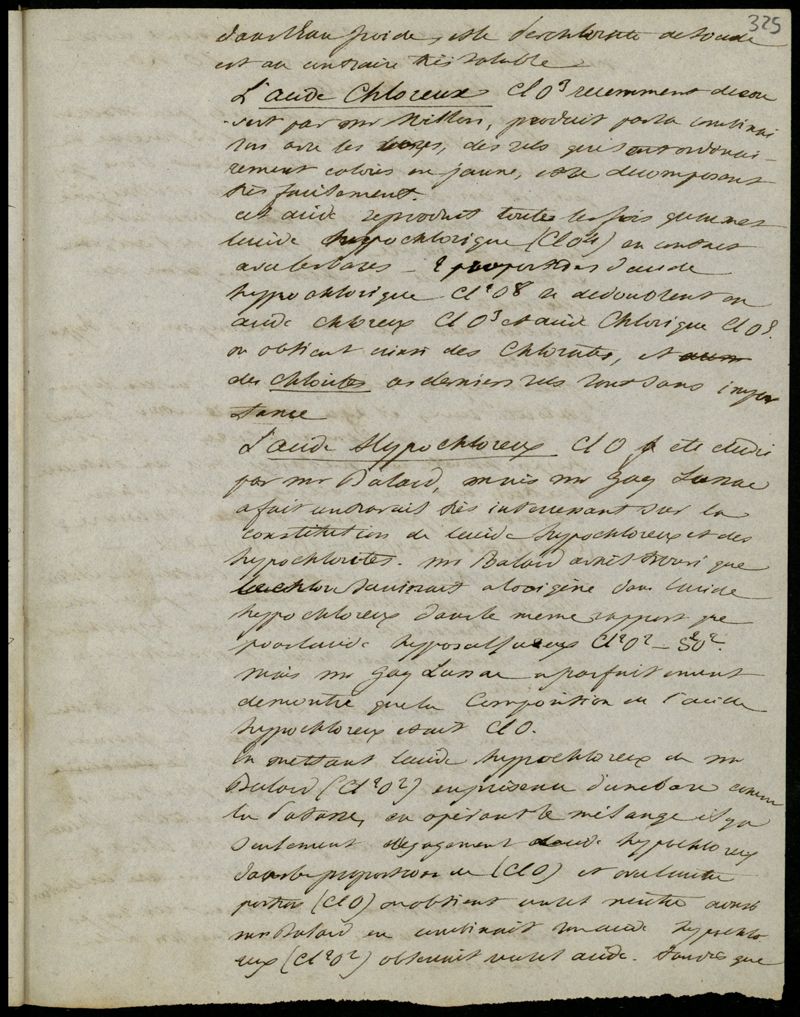 325
dans l'Eau froide, et le Perchlorate de soude
est au contraire très soluble
L'acide Chloreux ClO3 recemment decou
-vert par mr Millon, produit par sa combinai
son avec les bases, des sels qui sont ordinai-
rement colorés en jaune, et se decomposent
très facilement.
cet acide se produit toutes les fois qu'on met
l'acide hypochlorique (ClO4) en contact
avec les bases - 2 proportions d'acide
hypochlorique Cl2O8 se dedoublent en
acide chloreux ClO3 et acide Chlorique ClO5.
on obtient ainsi des Chlorates, et
des chlorites ces derniers sels sont sans impor
tance
L'acide Hypochloreux ClO a été étudié
par mr Balard, mais mr Gay Lussac
a fait un travail très interessant sur la
constitution de l'acide hypochloreux et des
hypochlorites. mr Balard avait trouvé que
le chlore s'unissait a l'oxigène dans l'acide
hypochloreux dans le meme rapport que
pour l'acide hyposulfureux Cl2O2 - S2O2.
mais mr Gay Lussac a parfaitement
demontré que la Composition de l'acide
hypochloreux etait ClO.
En mettant l'acide hypochloreux de mr
Balard (Cl2O2) en présence d'une base comme
la Potasse, en opérant le mélange il y a
seulement dégagement d'acide hypochloreux
dans la proportion de (ClO) et avec l'autre
portion (ClO) on obtient un sel neutre
mr Balard en combinait son acide hypochlo
reux (Cl2O2) obtenait un sel acide. Tandis que